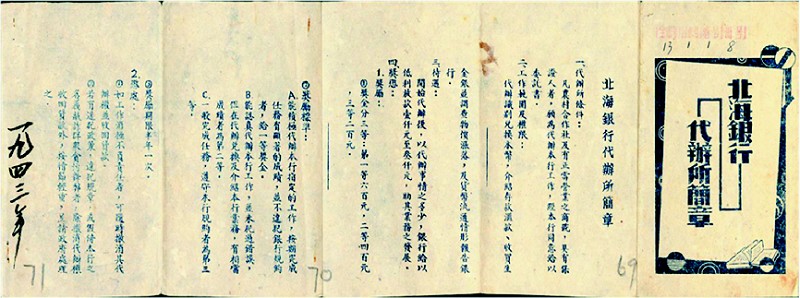 北海銀行
代辦所簡章
1 3 1 1 8
69
北海銀行代辦所簡章
一、代辦所條件：
凡農村合作社及有正當營業之商號，具有保
證人者，願為代辦本行工作，經本行同意給以
委託書。
二、工作範圍及權限：
代辦識別兌換本幣，介紹存款滙款，收買生
金銀並調查物價漲落，及貨幣流通情形報告銀
行。
三、待遇：
開始代辦後，以代辦事情之多少，銀行給以
低利接款壹仟元至叁仟元，助其業務之發展。
四、獎懲：
1. 獎勵：
①獎金分三等：第一等六百元，二等四百元
，三等二百元。
70
②獎勵標準：
A. 能積極代辦本行指定的工作，按期完成
任務有顯著的成績，並不違犯銀行規約
者，給一等獎金。
B. 能認真代辦本行工作，並未犯過錯誤，
但在代辦兌換及介紹本行業務，有相當
成績者為第二等。
C. 一般完成任務，遵守本行規約者為第三
等。
③獎勵期限半年一次。
2. 懲處：
①如工作消極不負責任者，可隨時撤消其代
辦權並收回貸款。
②若有違犯政策，違犯規章，或假借本行之
名義欺詐群眾
收回貸款外，按情節輕重，呈請政府處理
之。
71
一九四三年